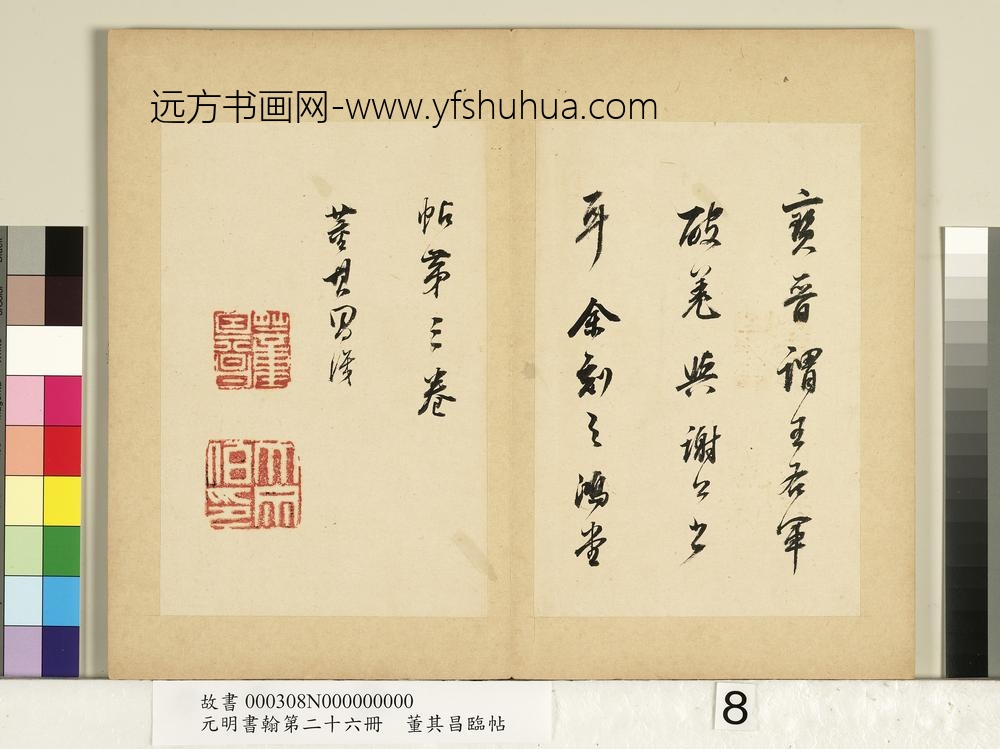 远方书画网-www.yfshuhua.com
寶晉謂王右軍
破羌與謝公書
耳余刻之鴻堂
帖第三卷
董其昌識
董其昌
大宗伯印
故書 000308N000000000
元明書翰第二十六冊 董其昌臨帖
8